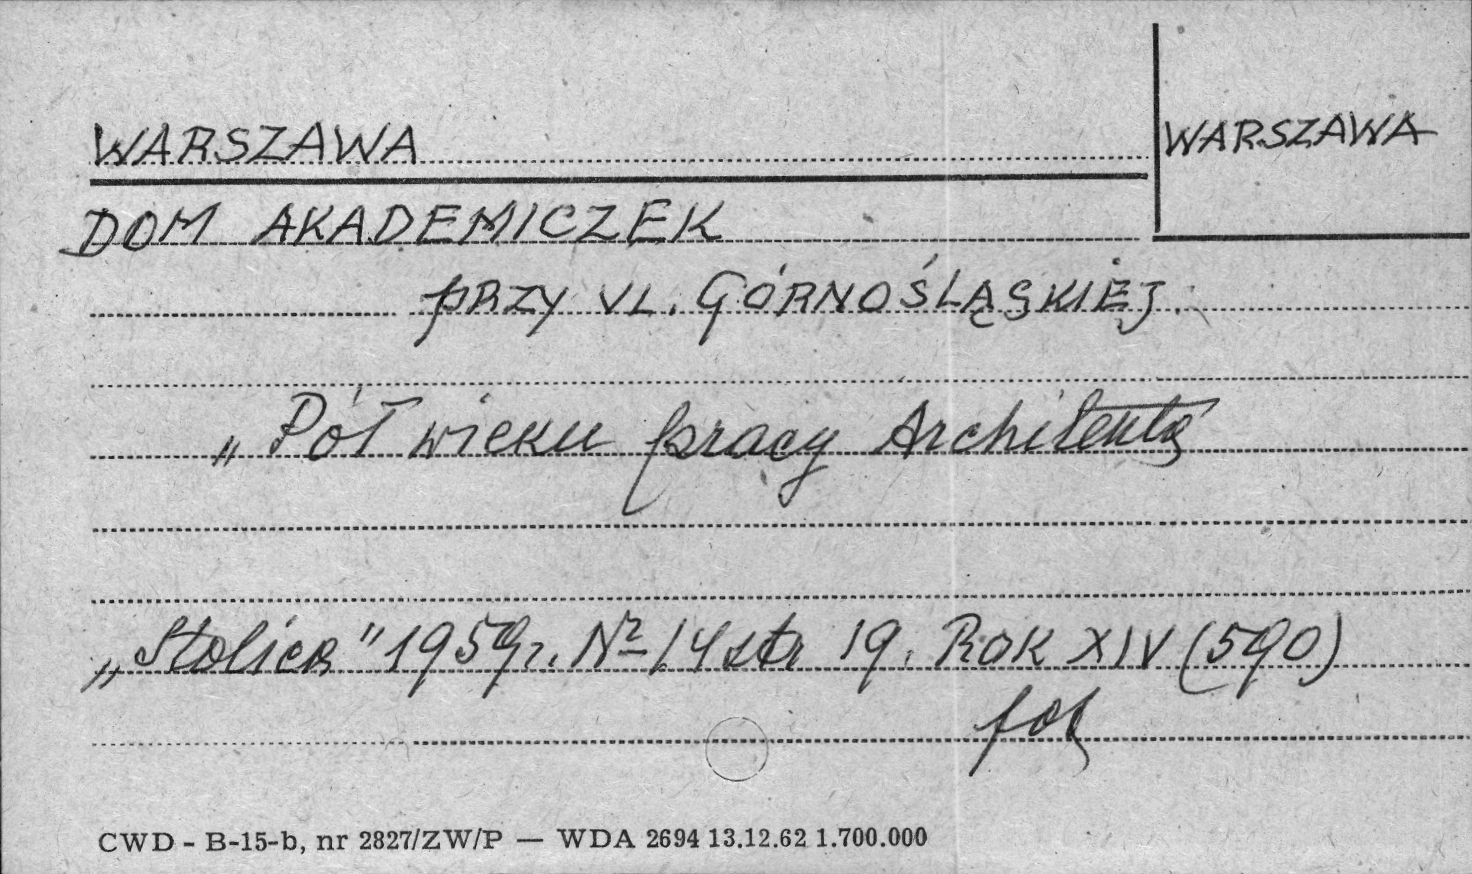 WARSZAWA
WARSZAWA
DOM AKADEMICZEK
PRZY UL. GÓRNOŚLĄSKIEJ.
„Pół wieku pracy Architekta
„Stolica" 1959r. Nº 14 str 19. ROK XIV (590)
fot
CWD - B-15-b, nr 2827/ZW/P — WDA 2694 13.12.62 1.700.000